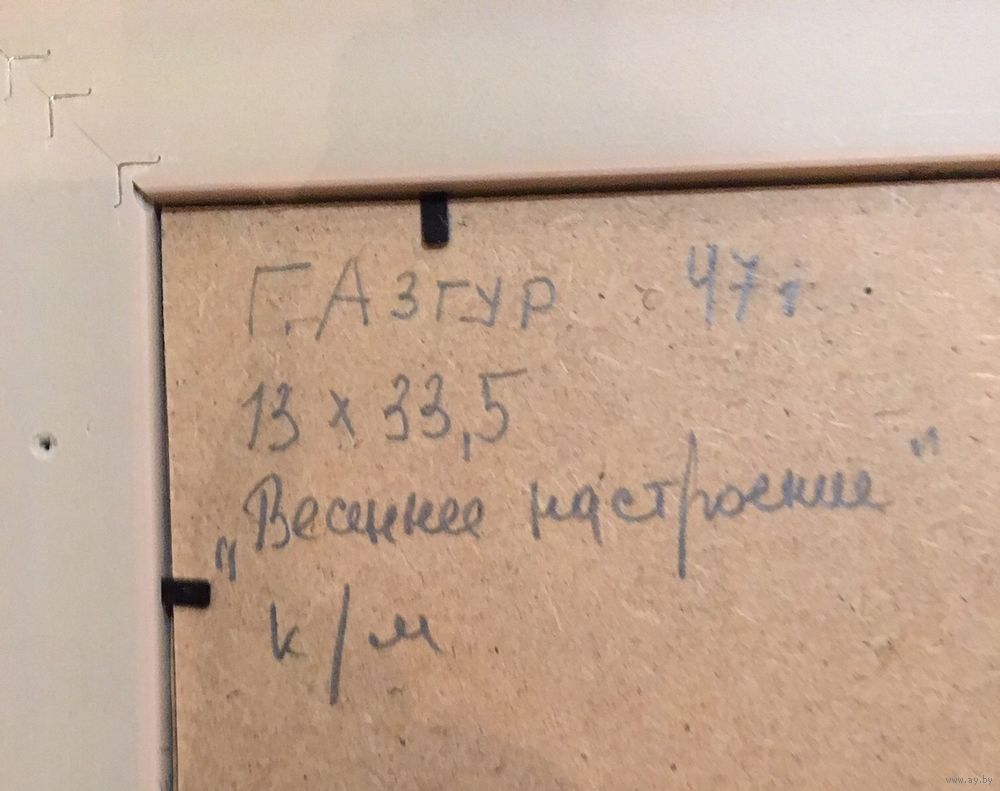 Г. Азгур 47г
13 х 33,5
„Весеннее настроение"
к/м
www.ay.by